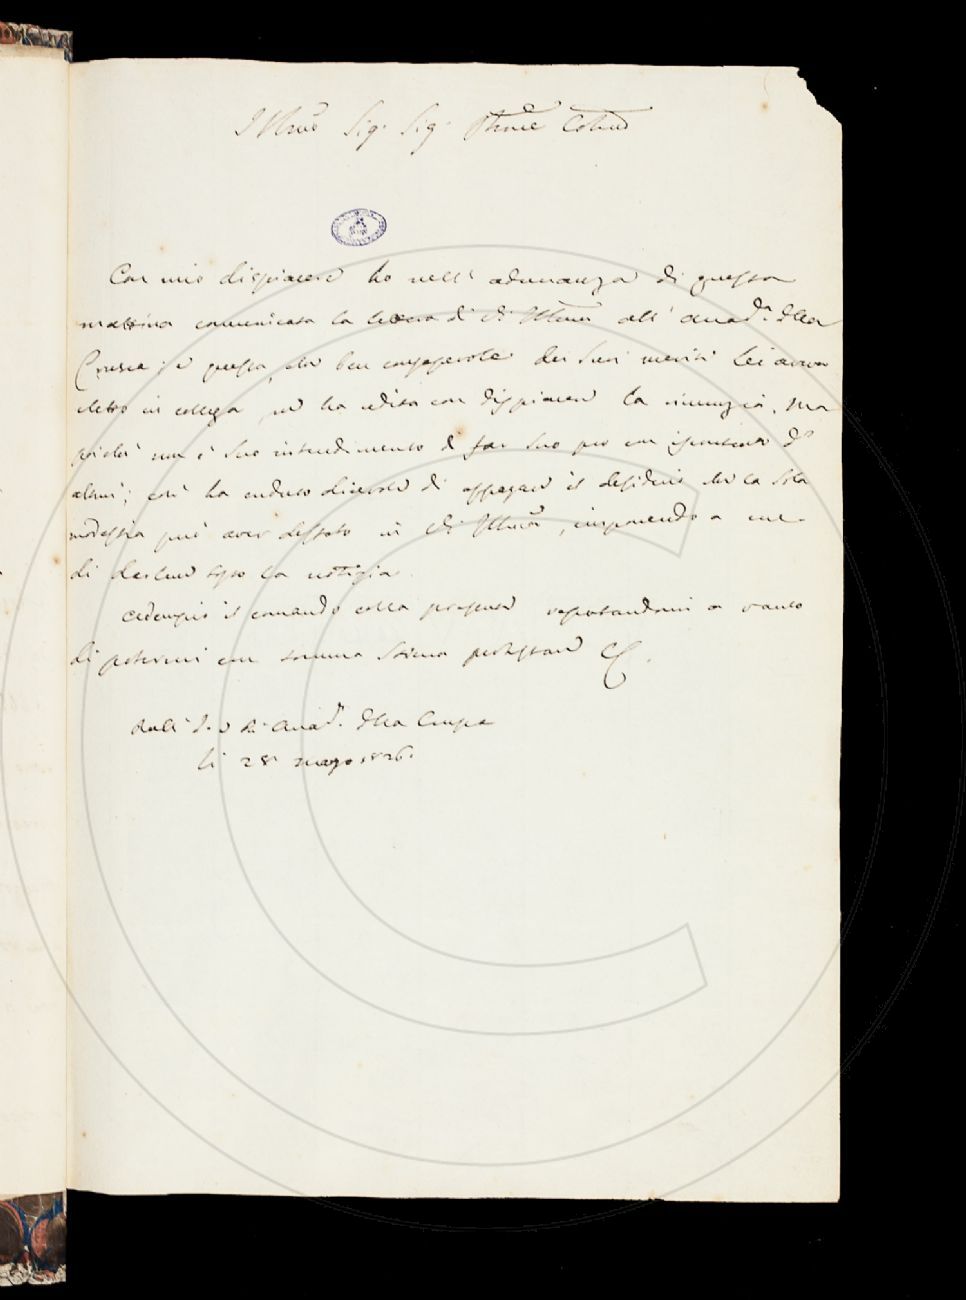 Illmo Sig. Sig. Prone Colmo
Con mio dispiacere ho nell' adunanza di questa
mattina comunicata la lettera di VS. Illma all' Accad.a della
Crusca; e questa, che ben consapevole dei suoi meriti Lei aveva
eletto in collega, ne ha udita con dispiacere la rinunzia. Ma
poichè non è suo intendimento di far
altrui; così ha creduto di appagare il desiderio che la sola
modestia può aver destato in VS. Illma, imponendo a me
di darlene la notizia.
Adempio il comando colla presente reputandomi a vanto
di potermi con somma stima protestare &c.
Dall' I. e R. Accad. della Crusca
li 28 1826.